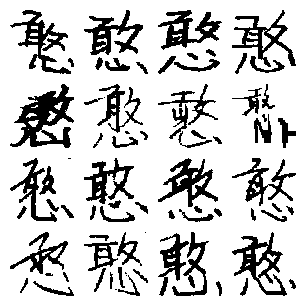 憨憨憨憨
憨憨憨憨
憨憨憨憨
憨憨憨憨